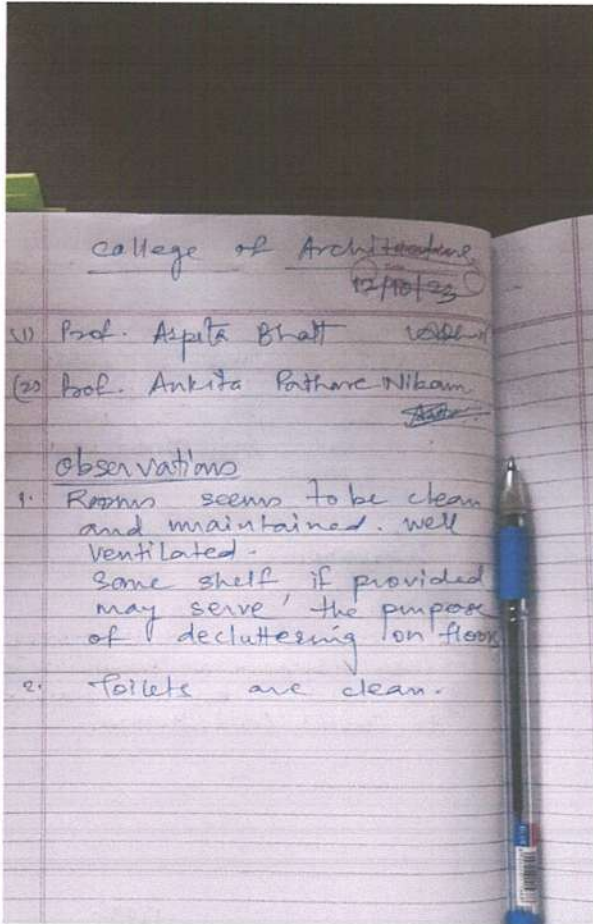 College of Architecture
12/10/23
(1) Prof. Aspita Bhatt
(2) Prof. Ankita Pathare Nikam
Observations
1. Rooms seems to be clean
and maintained. well
ventilated.
Some shelf, if provided
may serve, the purpose
of decluttering on floor
2. Toilets are clean.